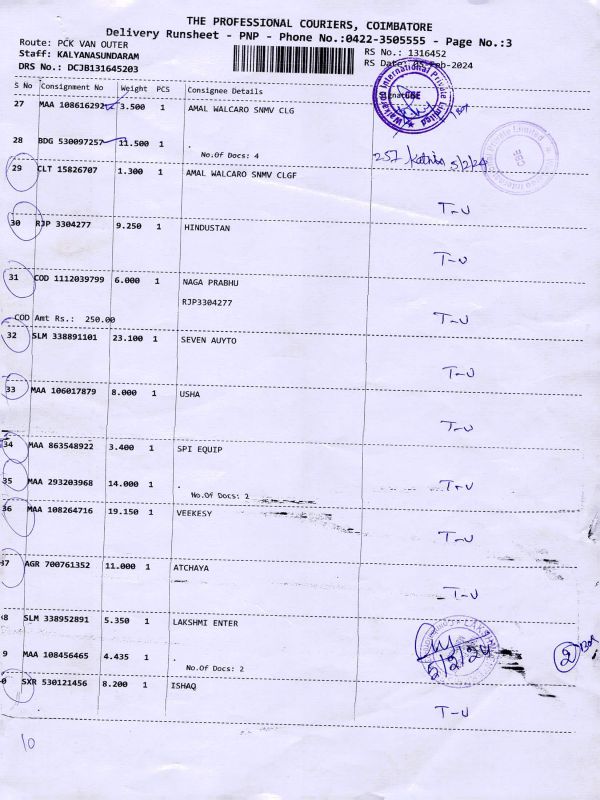 THE PROFESSIONAL COURIERS, COIMBATORE
Delivery Runsheet - PNP - Phone No.:0422-3505555 - Page No.:3
Route: PCK VAN OUTER
RS No.: 1316452
Staff: KALYANASUNDARAM
RS Date: 05-Feb-2024
DRS No.: DCJB131645203
S No Consignment No Weight PCS Consignee Details
27 MAA 108616292 3.500 1 AMAL WALCARO SNMV CLG
28 BDG 530097257 11.500 1 .
No.Of Docs: 4
257 5/2/24
29 CLT 15826707 1.300 1 AMAL WALCARO SNMV CLGF
T-U
30 RJP 3304277 9.250 1 HINDUSTAN
T-U
31 COD 1112039799 6.000 1 NAGA PRABHU
RJP3304277
COD Amt Rs.: 250.00
T-U
32 SLM 338891101 23.100 1 SEVEN AUYTO
T-U
33 MAA 106017879 8.000 1 USHA
T-U
34 MAA 863548922 3.400 1 SPI EQUIP
35 MAA 293203968 14.000 1 .
No.Of Docs: 2
T-U
36 MAA 108264716 19.150 1 VEEKESY
T-U
37 AGR 700761352 11.000 1 ATCHAYA
T-U
8 SLM 338952891 5.350 1 LAKSHMI ENTER
5/2/24
2 Box
9 MAA 108456465 4.435 1 .
No.Of Docs: 2
0 SXR 530121456 8.200 1 ISHAQ
T-U
10